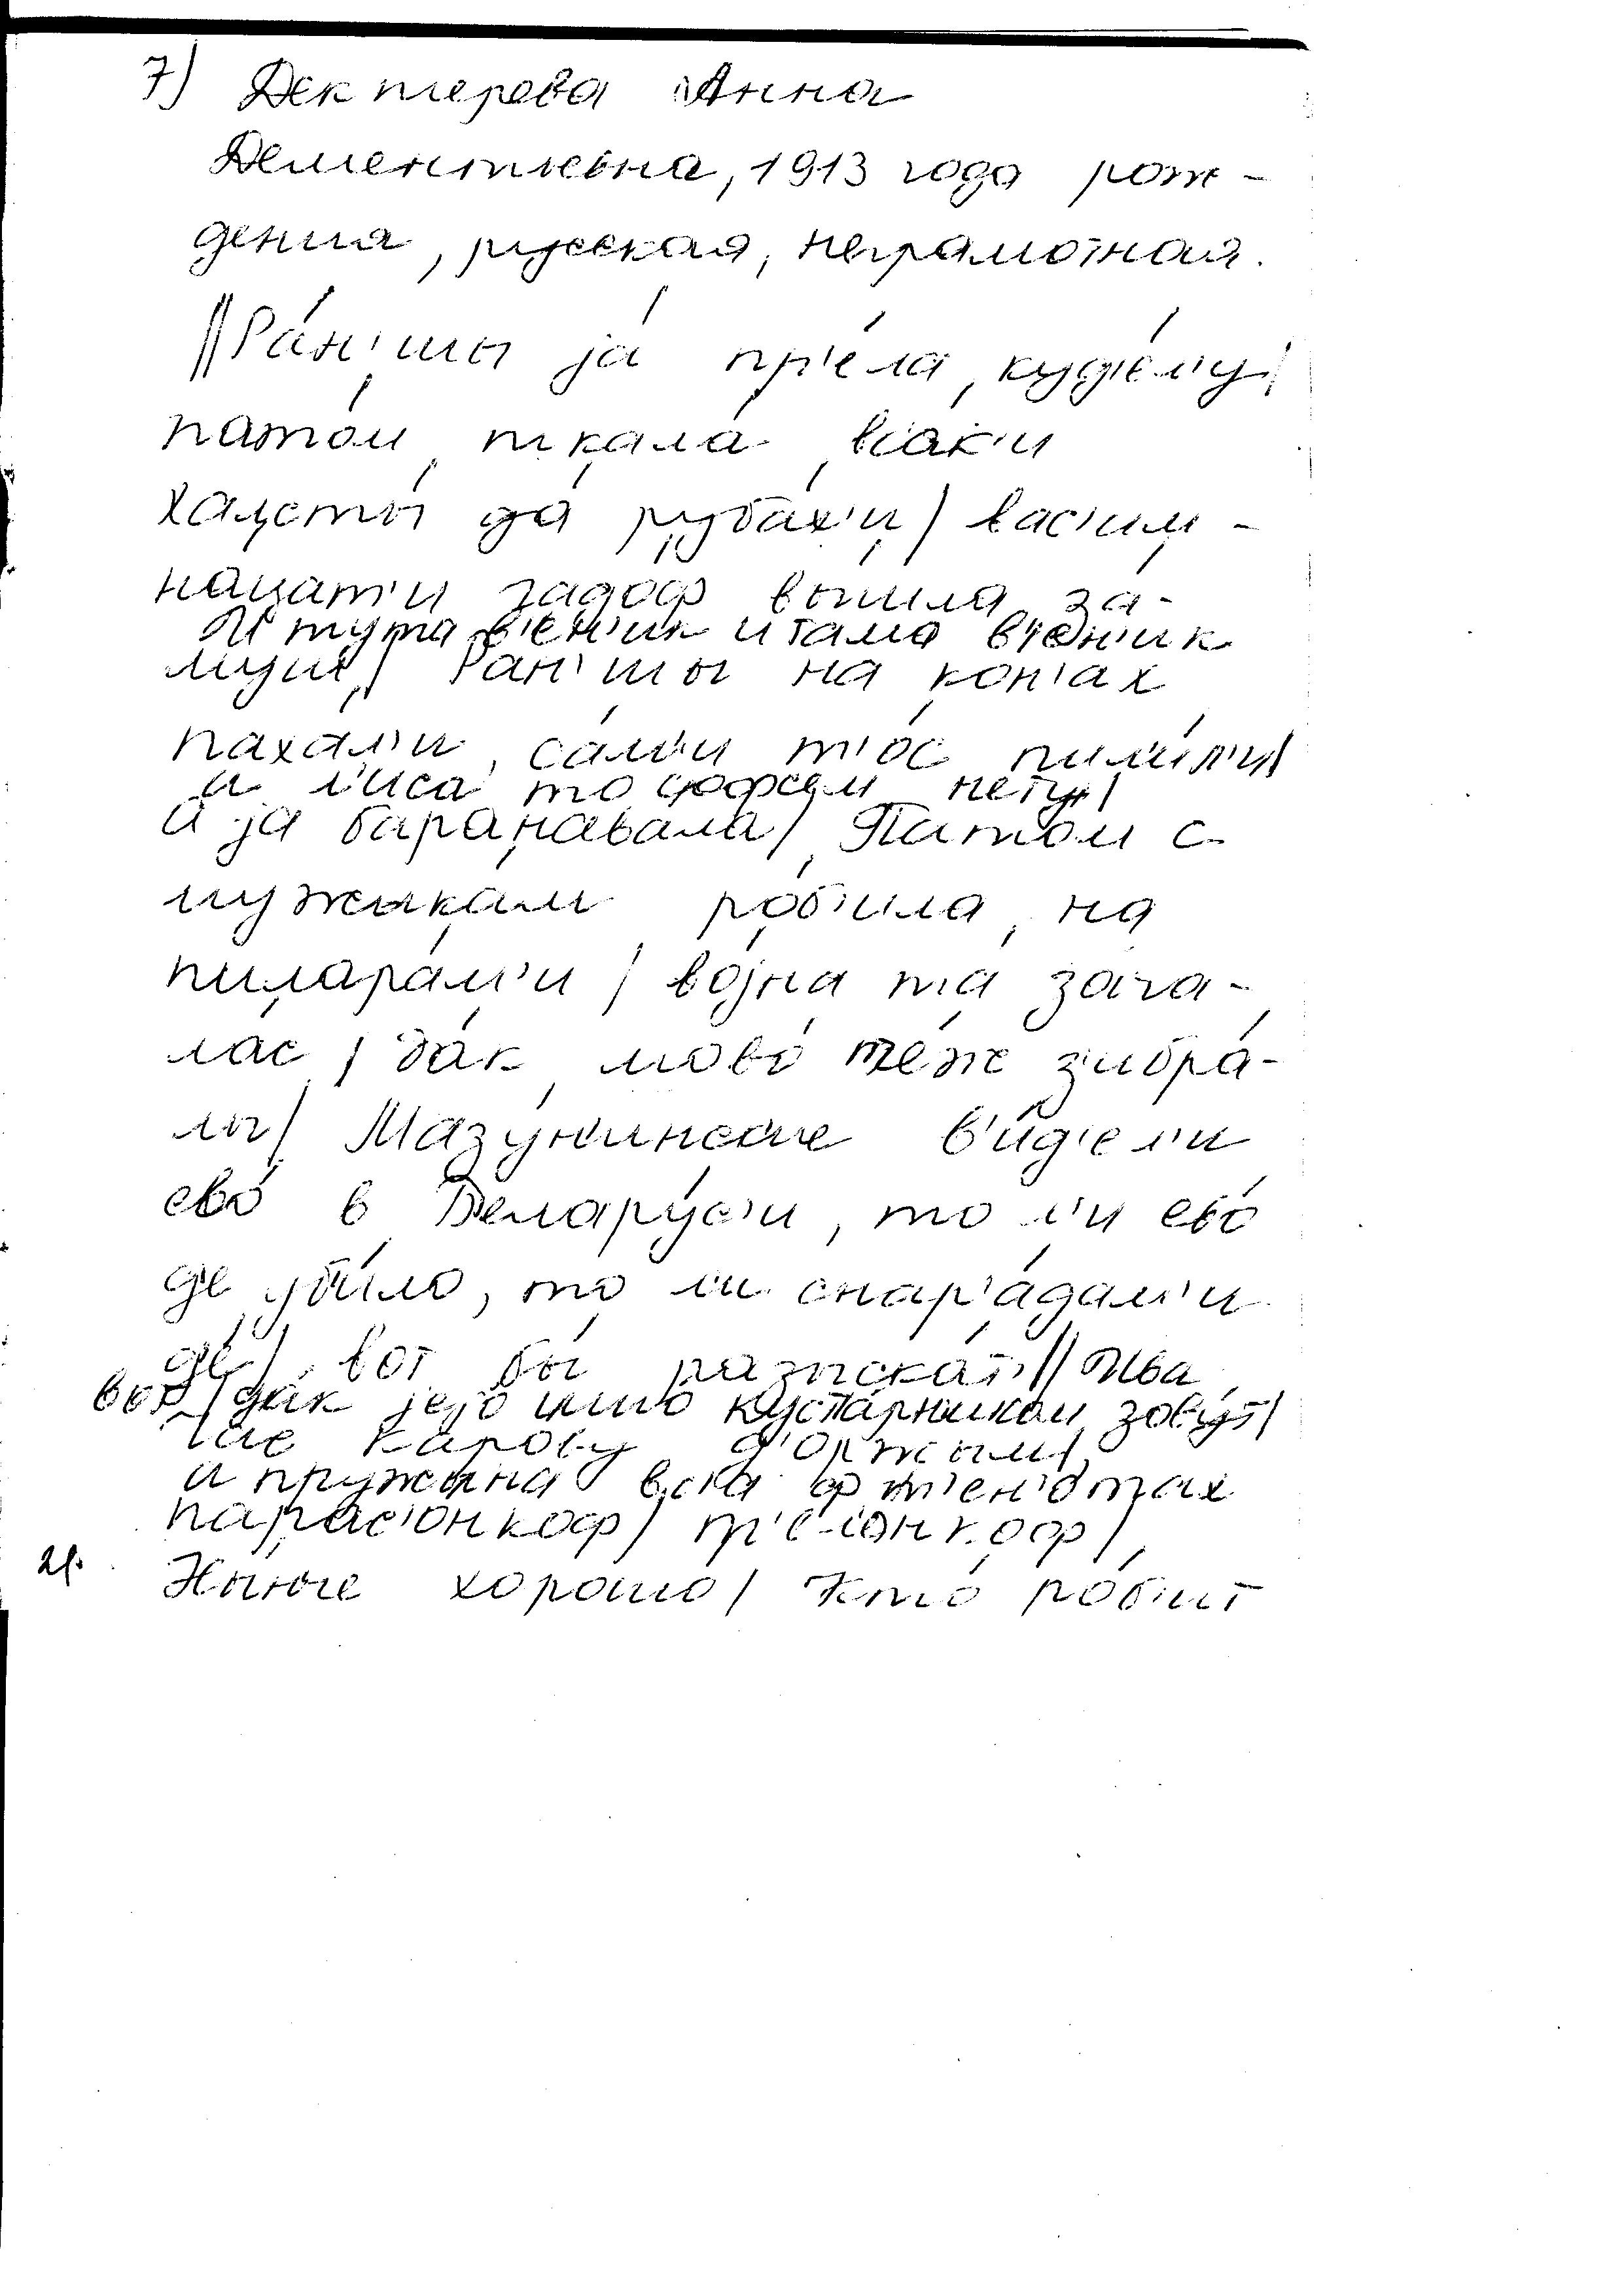 7) Дектерева Анна
Дементьевна, 1913 года рож-
дения, русская, неграмотная.
// Ра́н'шы ја́ пр'е́ла куд'е́л'у/
пато́м ткала́ вс'а́к'и
халсты́ да́ руба́х'и/ вас'им-
нацат'и гадо́ф вы́шла за́-
И тута в'е́н'ик и тамо в'е́н'ик
муш/ Ра́н'шы на кон'а́х
паха́л'и, са́м'и т'о́с пил'и́л'и/
а л'иса то цофсем нету/
а ја́ баранавала/ Пато́м с
мужыкам ро́б'ила на
пилара́м'и/ война́ та зача-
ла́с/ да́к мово́ то́же з'ибра́-
лы/ Мазу́н'инск'ие в'и́д'ел'и
ево́ в Б'елару́с'и, то л'и ево́
д'е уби́ло, то ли снар'а́дам'и
д'е́/ вот бы разыска́т'// Ива
вот/ дак јејо́ што куста́рником зову́т/
час каро́ву д'оржым/
а пружына вс'а ф т'ен'отах
парас'о́нкоф/ т'ел'о́нкоф/
21. Ны́нче хорошо́/ кто́ ро́бит